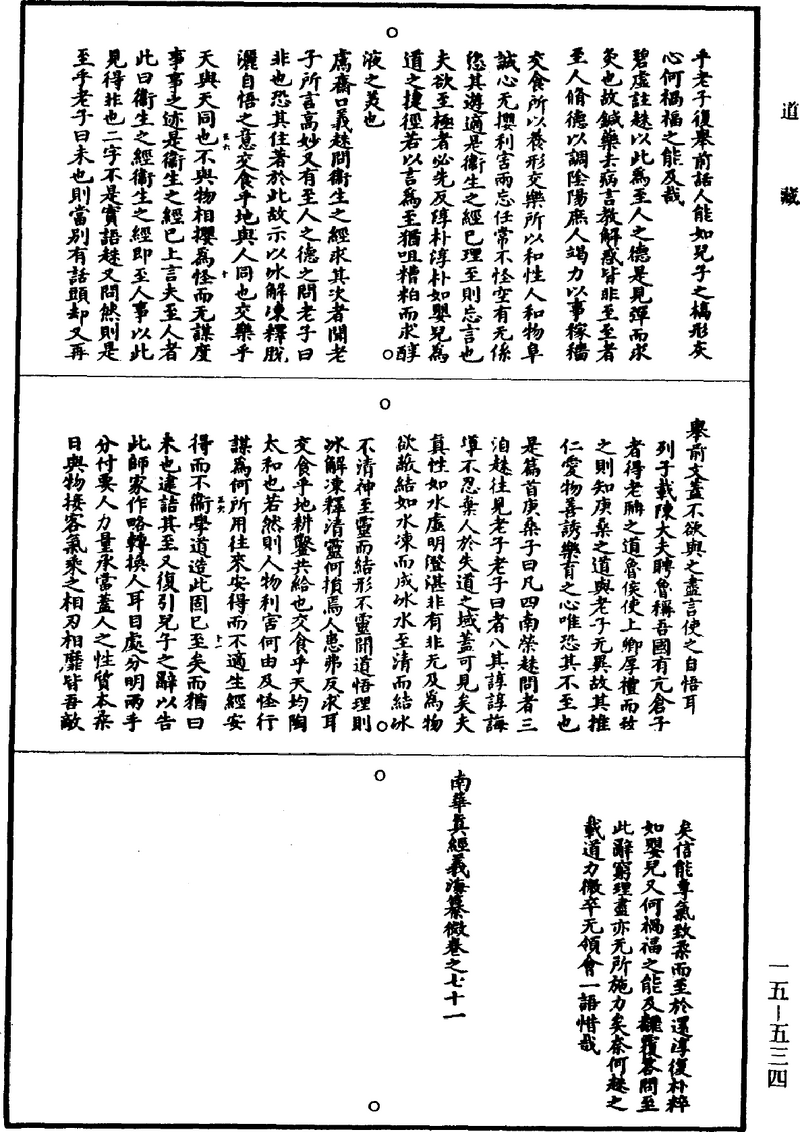 道藏
乎老子復舉前話人能如兒子之槁形灰
心何禍福之能及哉
碧虛註趎以此為至人之德是見彈而求
炙也故鍼藥去病言教解惑皆非至至者
至人脩德以調陰陽庶人竭力以事稼穡
交食所以養形交樂所以和性人和物阜
誠心无攖利害兩忘任常不怪空有无係
恣其遊適是衛生之經已理至則忘言也
夫欲至極者必先反淳朴淳朴如嬰兒為
道之捷徑若以言為至猶咀糟粕而求醇
液之美也
鬳齋口義趎問衛生之經求其次者聞老
子所言高妙又有至人之德之問老子曰
非也恐其住著於此故示以冰解凍釋脫
灑自悟之意交食乎地與人同也交樂乎
天與天同也不與物相攖為怪而无謀度
事事之迹是衛生之經已上言夫至人者
此曰衛生之經衛生之經即至人事以此
見得非也二字不是實語趎又問然則是
至乎老子曰未也則當別有話頭却又再
舉前文蓋不欲與之盡言使之自悟耳
列子載陳大夫聘魯稱吾國有亢倉子
者得老聃之道魯侯使上卿厚禮而致
之則知庚桑之道與老子无異故其推
仁愛物喜誘樂育之心唯恐其不至也
是篇首庚桑子曰凡四南榮趎問者三
洎趎往見老子老子曰者八其諄諄誨
導不忍棄人於失道之域蓋可見矣夫
真性如水虛明澄湛非有非无及為物
欲繳結如水凍而成冰水至清而結冰
不清神至靈而結形不靈聞道悟理則
冰解凍釋清靈何損焉人患弗反求耳
交食乎地耕鑿共給也交食乎天均陶
太和也若然則人物利害何由及怪行
謀為何所用往來安得而不適生經安
得而不衛學道造此固已至矣而猶曰
未也逮詰其至又復引兒子之辭以告
此師家作略轉換人耳目處分明兩手
分付要人力量承當蓋人之性質本柔
日與物接客氣乘之相刃相靡皆吾敵
矣信能專氣致柔而至於還淳復朴粹
如嬰兒又何禍福之能及離覆答問至
此辭窮理盡亦无所施力矣奈何趎之
載道力微卒无領會一語惜哉
南華真經義海纂微卷之七十一
一五—五三四